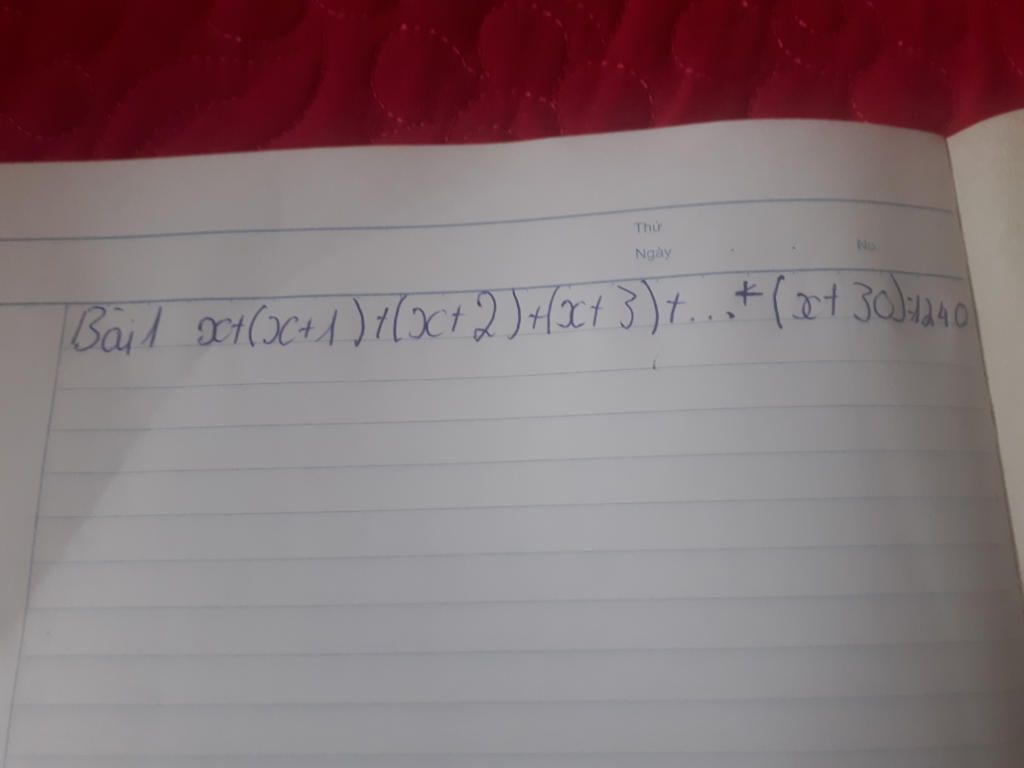 Thứ
Ngày . . No.
Bài 1 x+(x+1)+(x+2)+(x+3)+...+(x+30)=1240